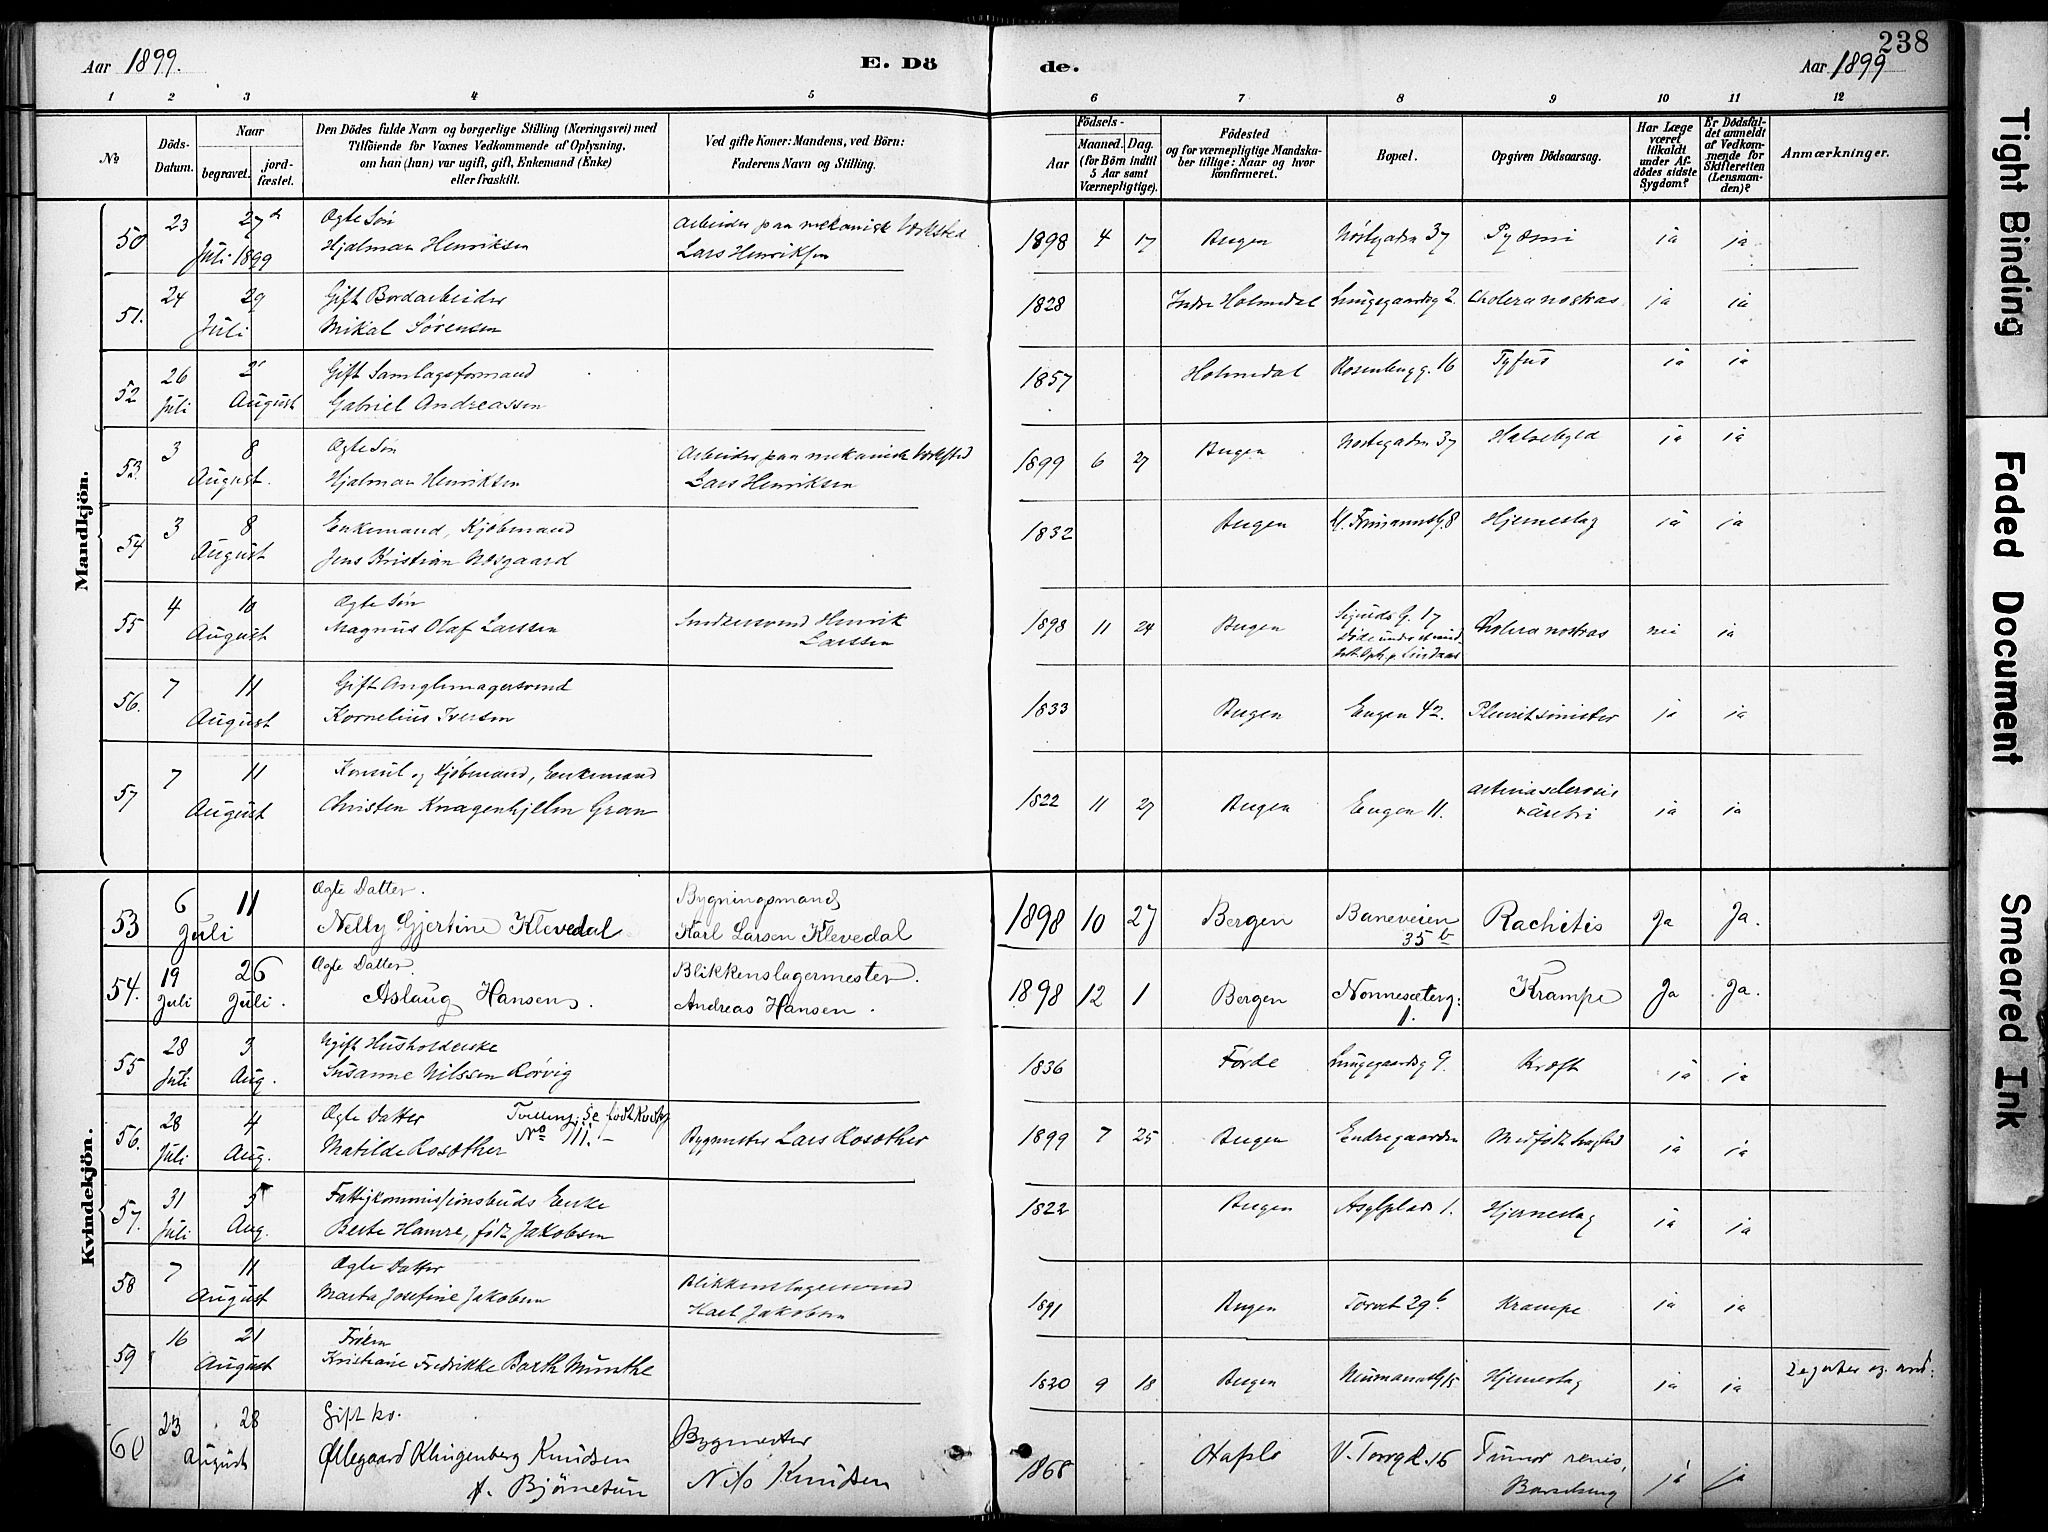 238
Aar 1899.
E. Dö
de.
Aar 1899
1 2 3 4 5 6 7 8 9 10 11 12
No
Döds-Datum.
Naar
begravet.
jord-fæstet.
Den Dödes fulde Navn og borgerlige Stilling (Næringsvei) med
Tilföiende for Voxnes Vedkommende af Oplysning,
om han (hun) var ugift, gift, Enkemand (Enke)
eller fraskilt.
Ved gifte Koner: Mandens, ved Börn:
Faderens Navn og Stilling.
Födsels-
Aar
Maaned. Dag.
(for Börn indtil
5 Aar samt
Værnepligtige).
Födested
og for værnepligtige Mandska-
ber tillige: Naar og hvor
konfirmeret.
Bopæl.
Opgiven Dödsaarsag.
Har Læge
været
tilkaldt
under Af-
dödes sidste
Sygdom?
Er Dödsfal-
det anmeldt
af Vedkom-
mende for
Skifteretten
(Lensman-
den)?
Anmærkninger.
Mandkjön.
50 23 27de Ægte Søn Arbeider paa mekanisk Verksted 1898 4 17 Bergen Nöstegaden 37 Pyæmi ja ja
Juli 1899 Hjalmar Henriksen Lars Henriksen
51. 24 29 Gift Bordarbeider 1828 Indre Holmedal Lungegaardsg 2. Cholera nostras ja ja
Juli Mikal Sørensen
52 26 2 Gift Samlagsformand 1857 Holmedal Rosenbergg. 16 Tyfus ja ja
Juli August Gabriel Andreassen
53. 3 8 Ægte Søn Arbeider paa mekanisk Verksted 1899 6 27 Bergen Nöstegaden 37 Halsebyld ja ja
August. Hjalmar Henriksen Lars Henriksen
54 3 8 Enkemand, Kjöbmand 1832 Bergen Frimannsg. 8 Hjerneslag ja ja
August Jens Kristian
55 4 10 Ægte Søn Henrik 1898 11 24 Bergen Sigurdsg. 17 Cholera nostras nei ja
August Magnus Olaf Larssen Larssen
56. 7 11 Gift 1833 Bergen Engen 42. Pleurit sinister ja ja
August Kornelius Iversen
57 7 11 Konsul og Kjöbmand, Enkemand 1822 11 27 Bergen Engen 11. ja ja
August Christen Knagenhjelm Gran
Kvindekjön.
53 6 11 Ægte Datter. Bygningsmand 1898 10 27 Bergen Baneveien 35 b Rachitis Ja Ja.
Juli Nelly Gjertine Klevedal Karl Larsen Klevedal
54. 19 26 Ægte Datter. Blikkenslagermester. 1898 12 1 Bergen Nonnesæterg: 1. Krampe Ja Ja.
Juli Juli. Aslaug Hansen. Andreas Hansen.
55 28 3 Ugift Husholderske 1836 Førde Lungegaardsg 9. Kræft ja ja
Juli Aug. Susanne Nilssen Rörvig
56. 28 4 Ægte Datter Tvilling, se født Kvindekj No 111. Bygmester Lars Rosæther 1899 7 25 Bergen Endregaarden Medfødt Svaghed ja ja
Juli Aug. Matilde Rosæther
57. 31 5 Fattigkommissionsbuds Enke 1822 Bergen Asylplads 1. Hjerneslag ja ja
Juli Aug. Berte Hamre, født Jakobsen
58 7 11 Ægte Datter Blikkenslagersvend 1891 Bergen Torvet 29 b. Krampe ja ja
August Marta Josefine Jakobsen Karl Jakobsen
59 16 21 Frøken 1820 9 18 Bergen Neumannsg 15 Hjerneslag ja ja
August Kristiane Fredrikke Barth Munthe
60 23 28 Gift ko. Bygmester 1868 Hafslo V. Torvgd. 16 Tumor renis, ja ja
August Øllegaard Klingenberg Knudsen Nils Knudsen Barselseng
f. Bjørnetun
Tight Binding
Faded Document
Smeared Ink